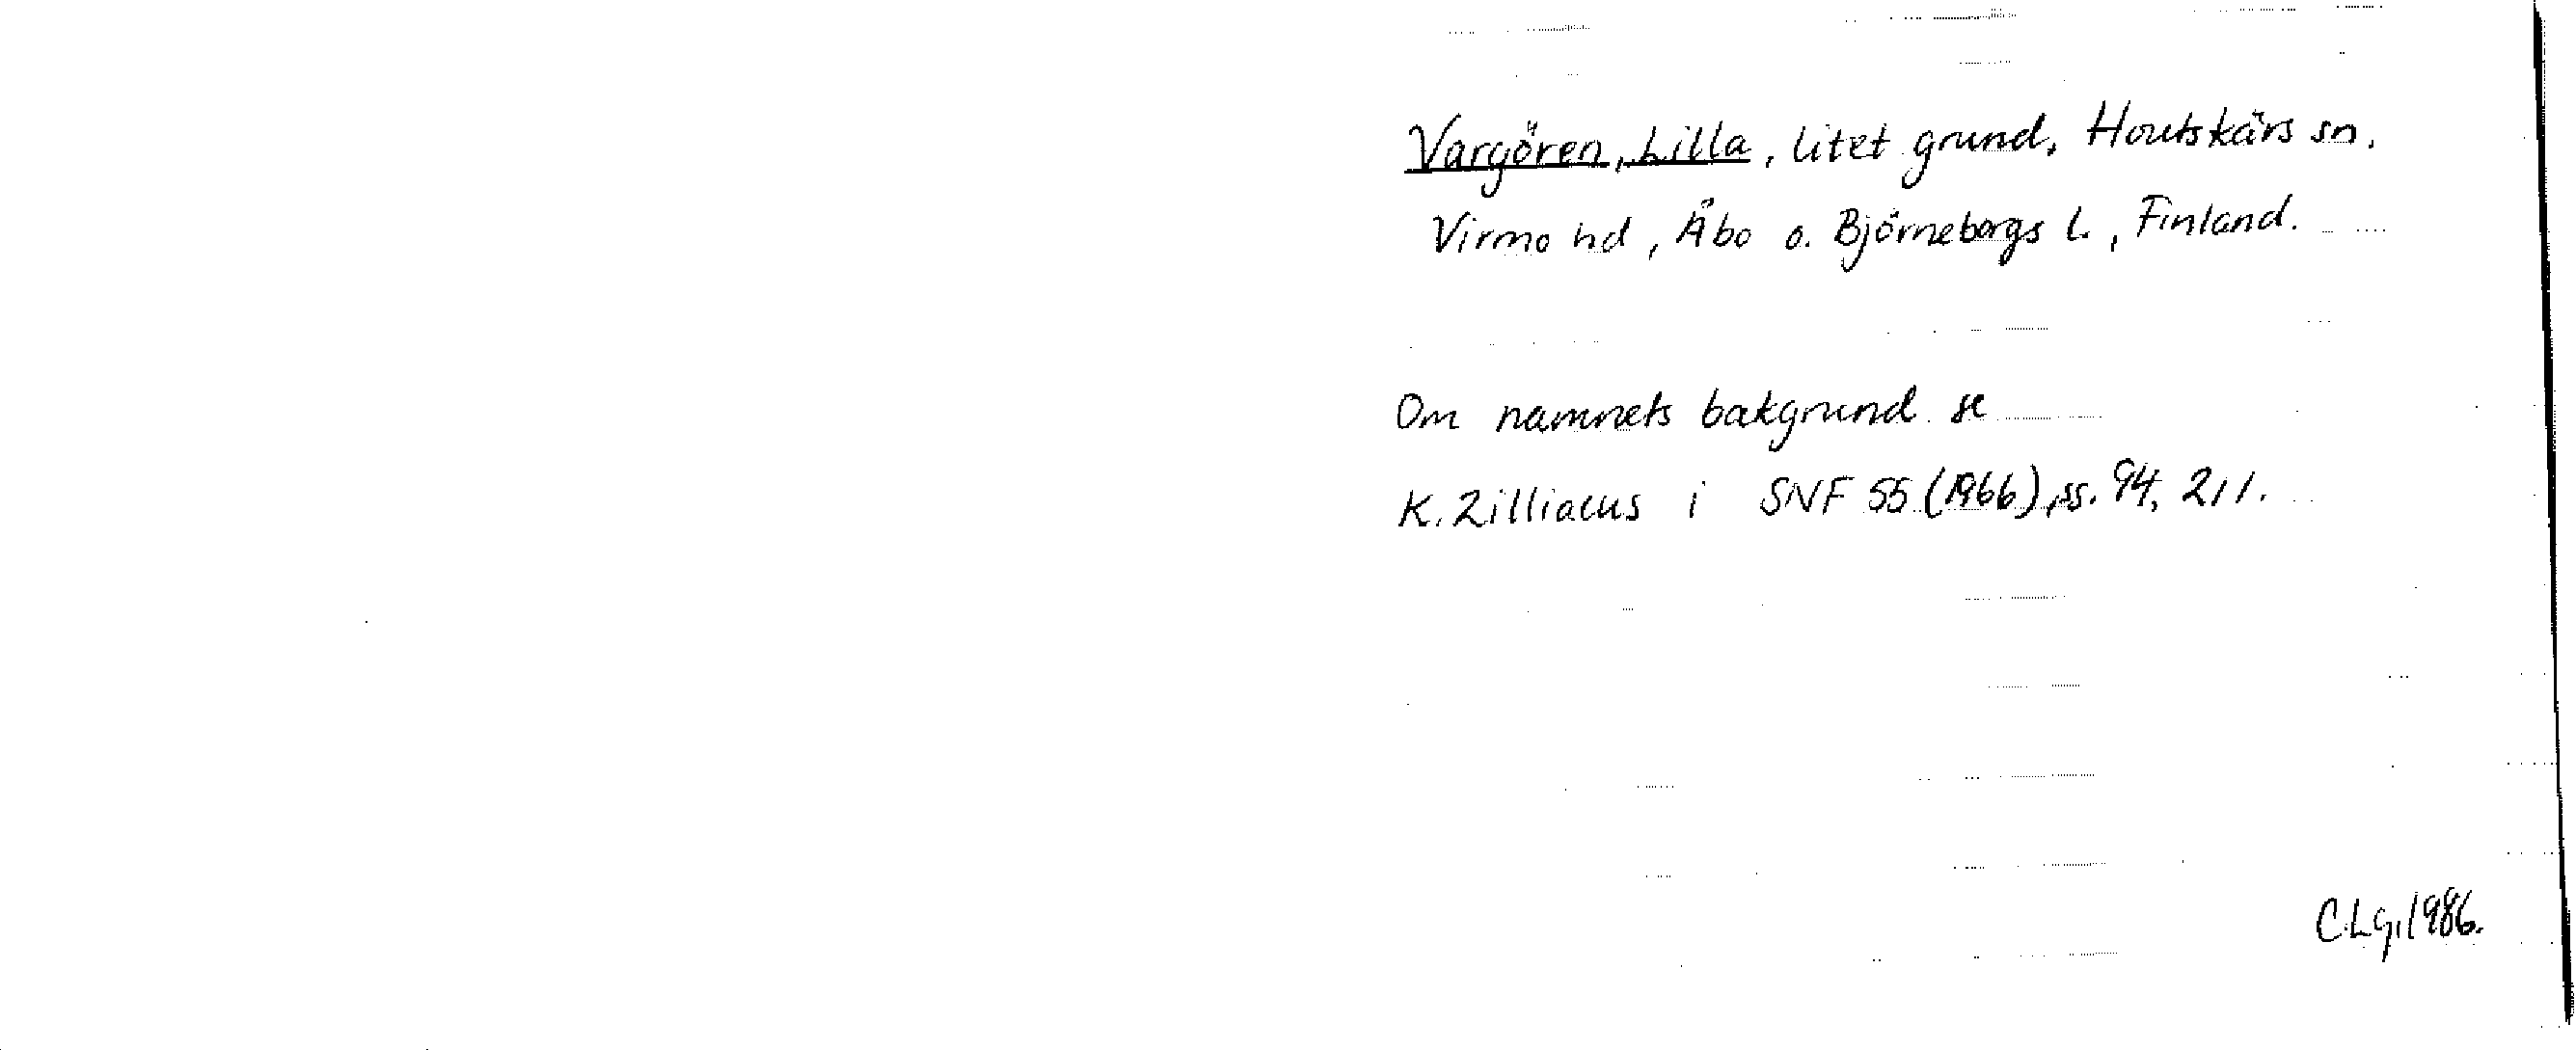 Vargören, Lilla, litet grund, Houtskärs sn,
Virmo hd, Åbo o. Björneborgs l., Finland.
Om namnets bakgrund se
K. Zilliacus i SNF 55 (1966), ss. 94, 211.
C.LG, 1986.